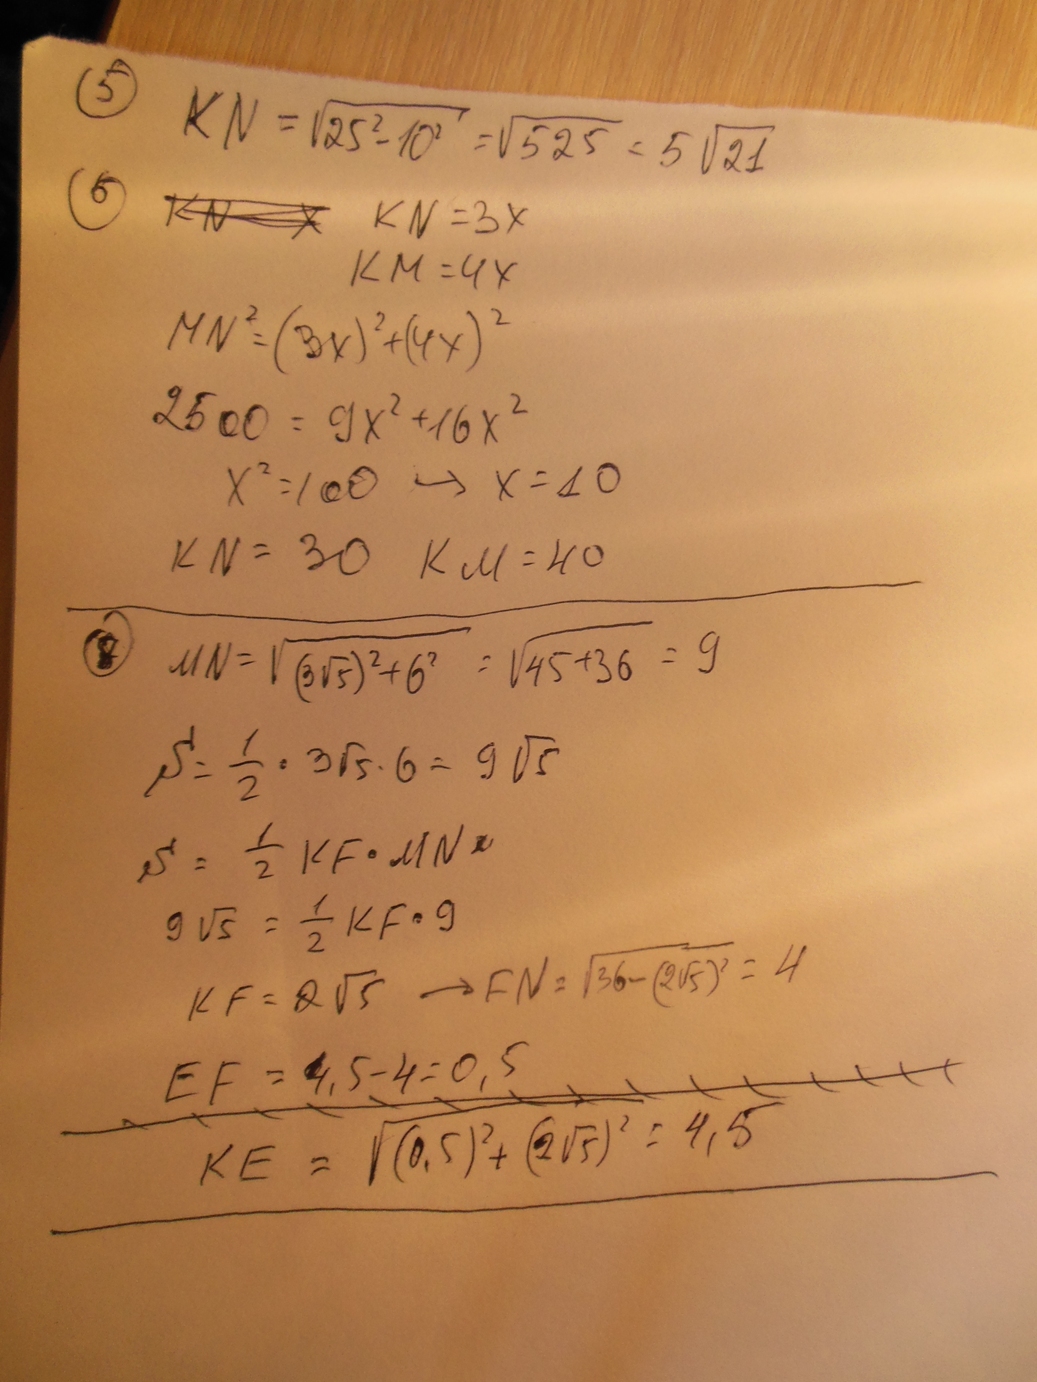 5
KN = √25²-10² = √525 = 5√21
6
KN = 3x
KM = 4x
MN² = (3x)² + (4x)²
2500 = 9x² + 16x²
x² = 100 → x = 10
KN = 30 KM = 40
MN = √(3√5)² + 6² = √45+36 = 9
S = 1/2 · 3√5 · 6 = 9√5
S = 1/2 KF · MN
9√5 = 1/2 KF · 9
KF = 2√5 → FN = √36-(2√5)² = 4
EF = 4,5 - 4 = 0,5
KE = √(0,5)² + (2√5)² = 4,5